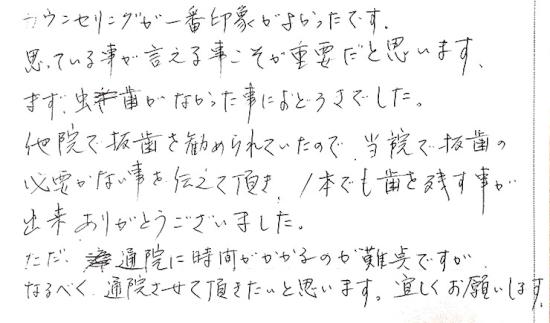 カウンセリングが一番印象がよかったです.
思っている事が言える事こそが重要だと思います、
まず、虫歯がなかった事におどろきでした。
他院で抜歯を勧められていたので、当院で抜歯の
必要がない事を伝えて頂き、1本でも歯を残す事が
出来ありがとうございました。
ただ、通院に時間がかかるのが難点ですが
なるべく、通院させて頂きたいと思います。宜しくお願いします.